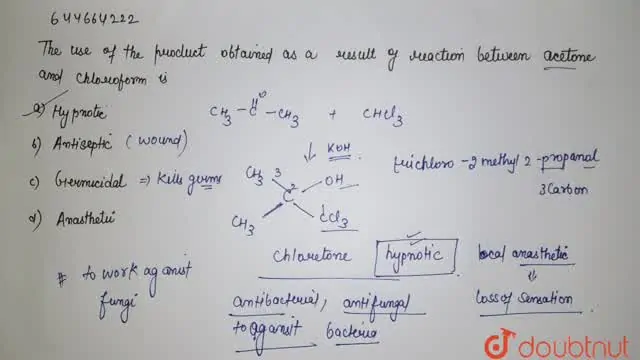 644664222
The use of the product obtained as a result of reaction between acetone
and chloroform is
a) Hypnotic
b) Antiseptic (wound)
c) Germicidal ⇒ Kills germs
d) Anasthetic
CH3 - C - CH3 + CHCl3
O
KOH
CH3 3
C 2
OH
CH3
CCl3
trichloro-2 methyl 2-propanal
3 Carbon
Chloretone hypnotic local anasthetic
# to work against
fungi
antibacterial, antifungal
to against bacteria
loss of sensation
doubtnut